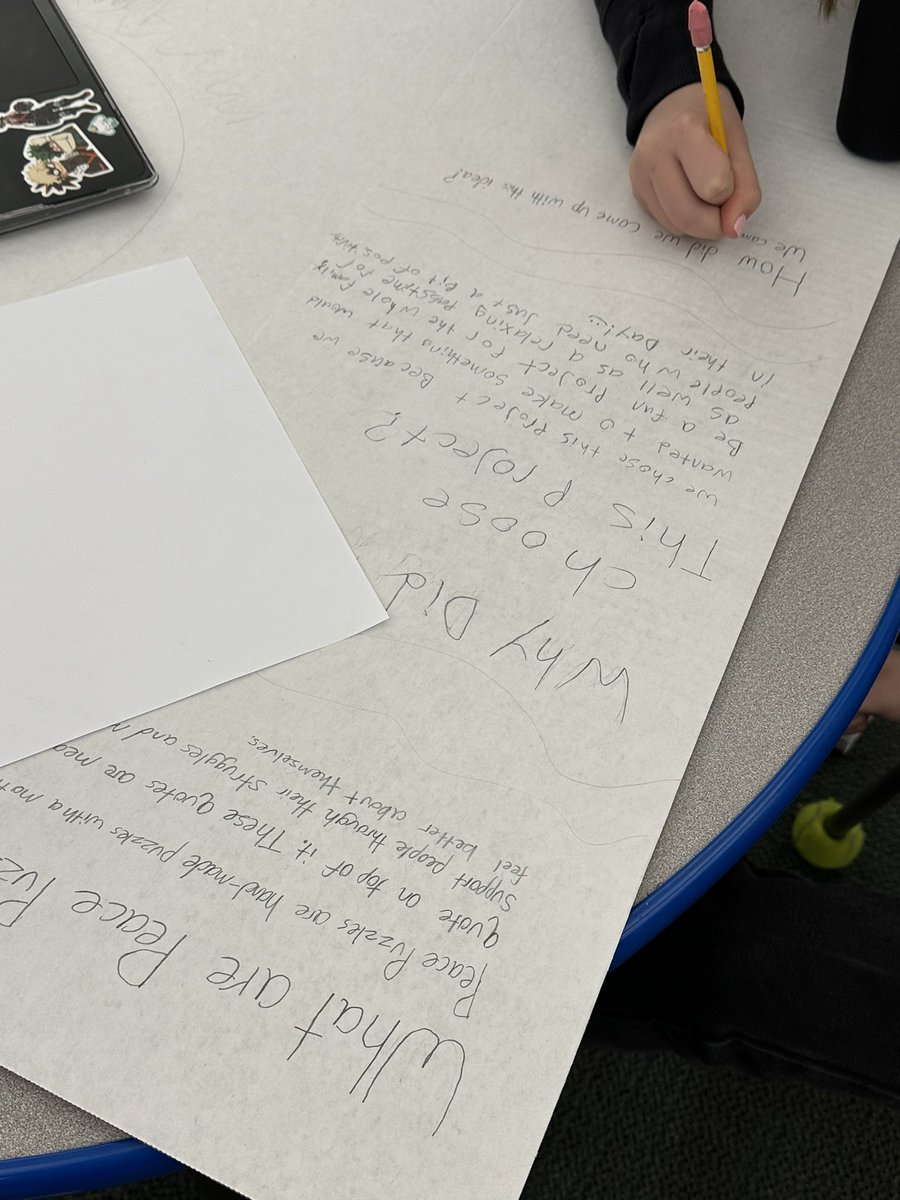 What are Peace
Peace Puzzles are hand-made puzzles with a
quote on top of it. These quotes are
support people through their struggles and
feel better about themselves.
Why Did
choose
This project?
We chose this project because we
wanted to make something that would
Be a fun project for the whole family
as well as a relaxing Passtime for
people who need just a bit of positive
in their Day!
How did we come up with this idea?
We cam